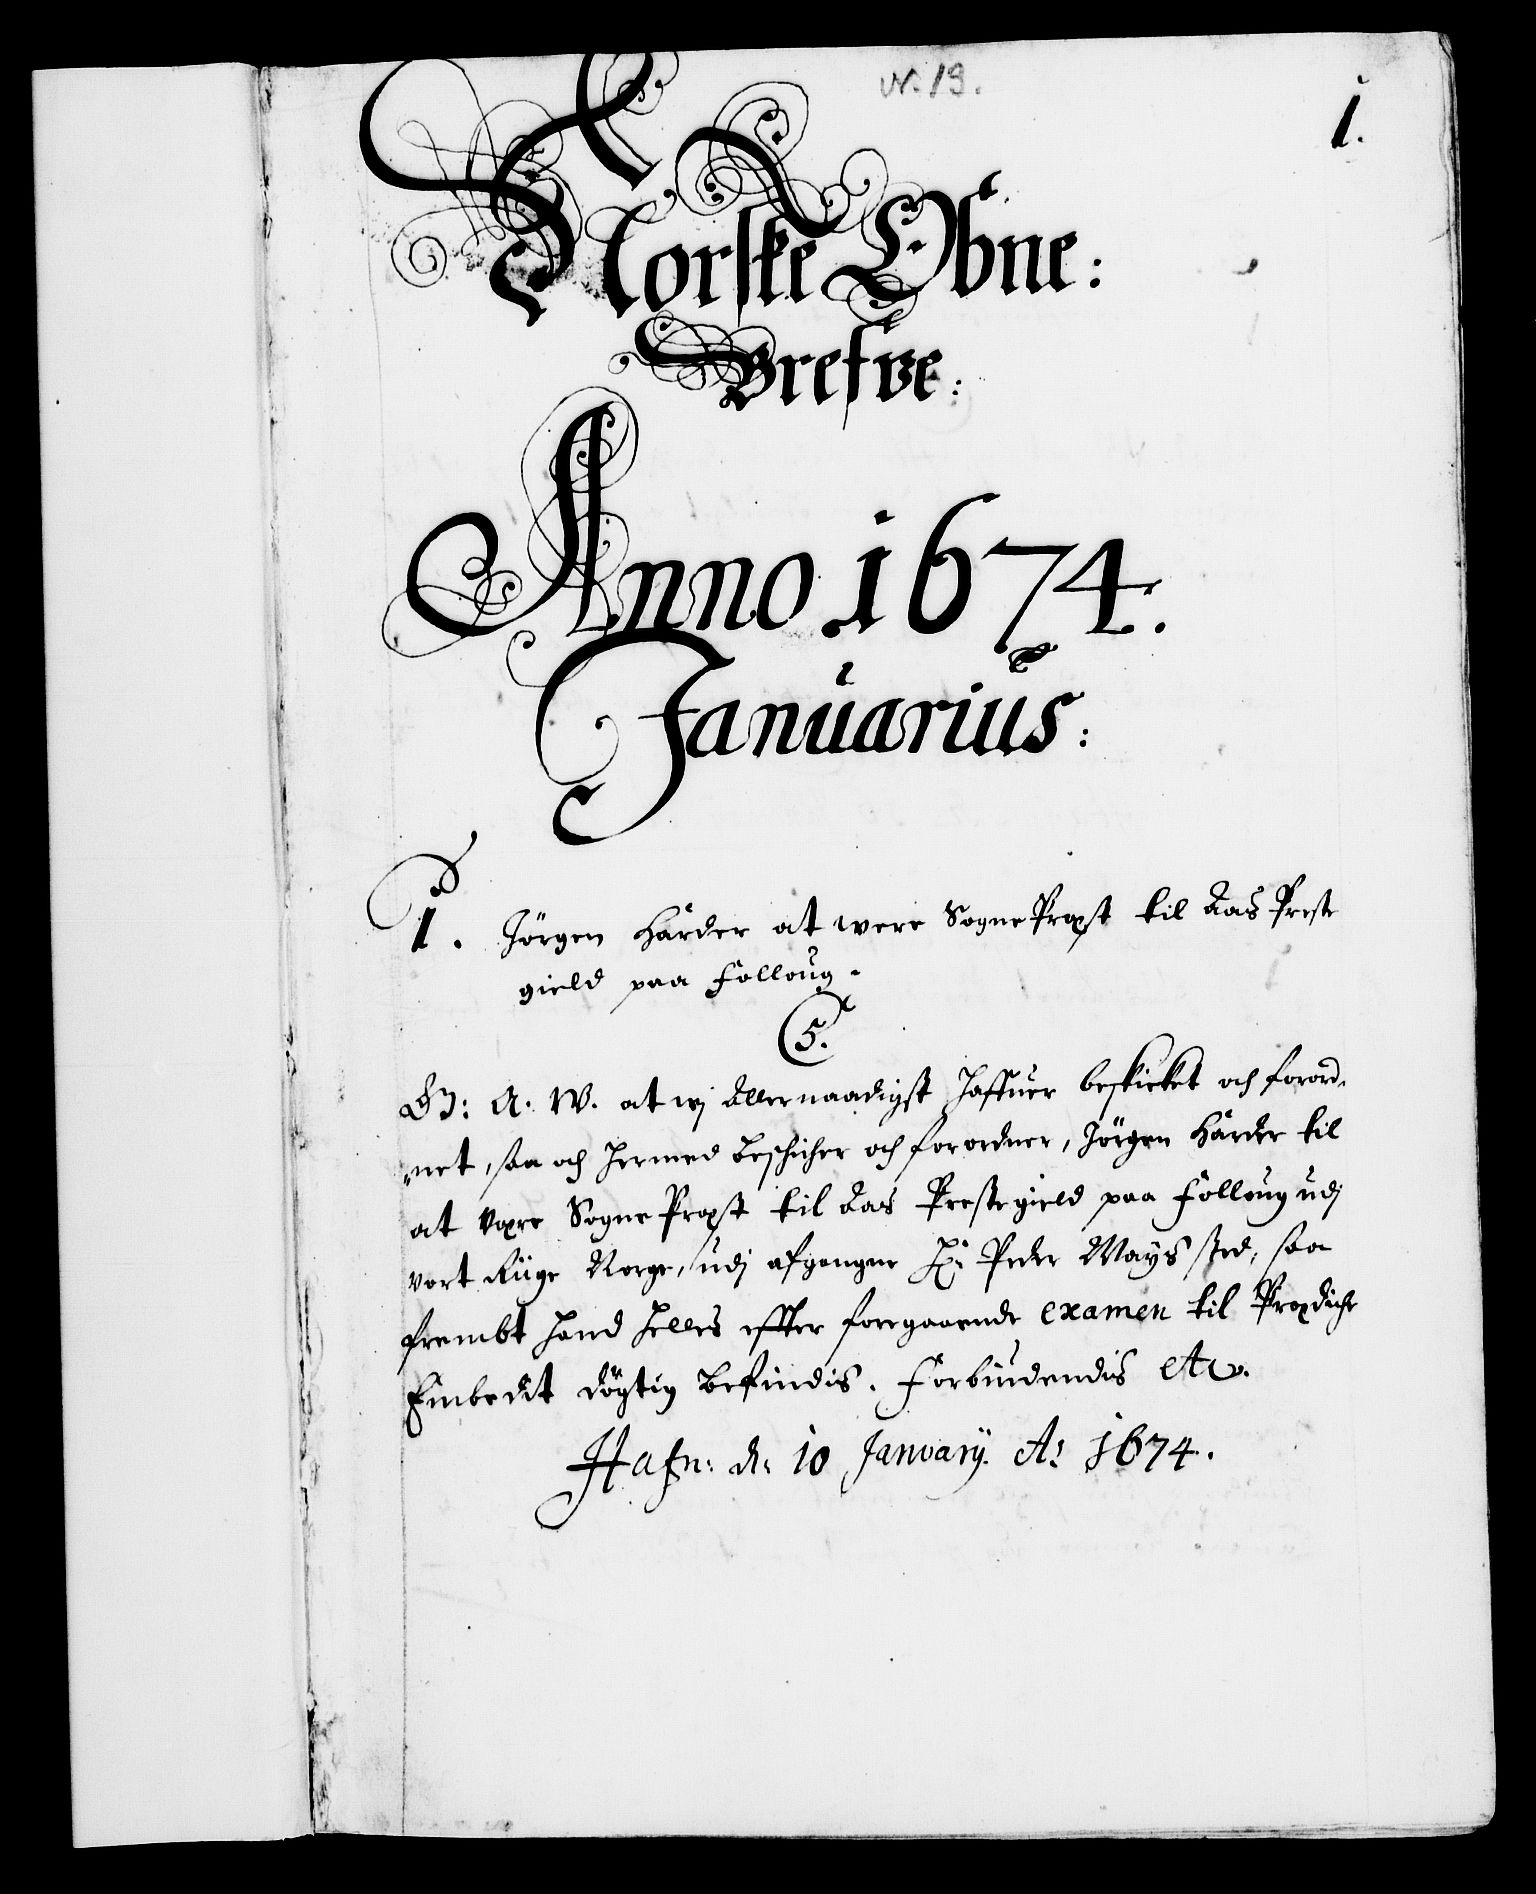 N. 19.
1.
Norske Obne:
Brefve:
Anno 1674.
Januarius:
1. Jörgen Harder at were Sogne Præst til Aas Preste
gield paa Folloug.
C5.
G: A: W. at wj Allernaadigst haffuer beskicket och forord-
net, saa och hermed beschicher och forordner, Jörgen Harder til
at være Sogne Præst til Aas Prestegield paa Folloug udj
vort Rüge Norge, udj afgangne Hr: Peder Mays sted, saa
frembt hand hellers effter foregaaende examen til Prædiche
Embedit dögtig befindis. Forbiudendis etc.
Hafn: d: 10 Januarij. Ao 1674.